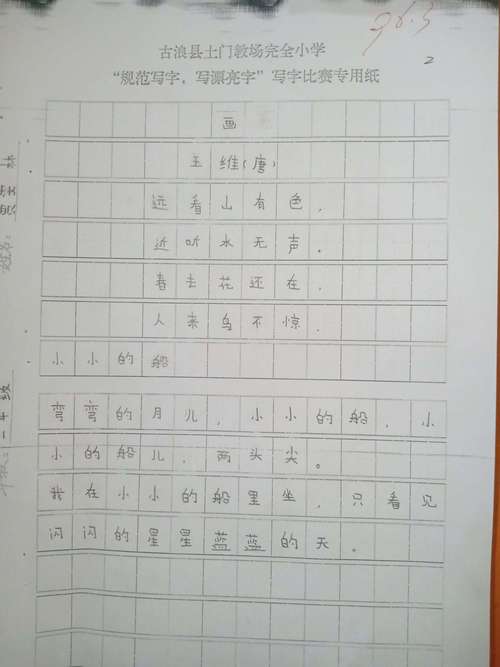 96.3
2
古浪县土门教场完全小学
“规范写字，写漂亮字”写字比赛专用纸
画
王维（唐）
远看山有色，
近听水无声。
春去花还在，
人来鸟不惊，
小小的船
弯弯的月儿，小小的船，小
小的船儿，两头尖。
我在小小的船里坐，只看见
闪闪的星星蓝蓝的天。